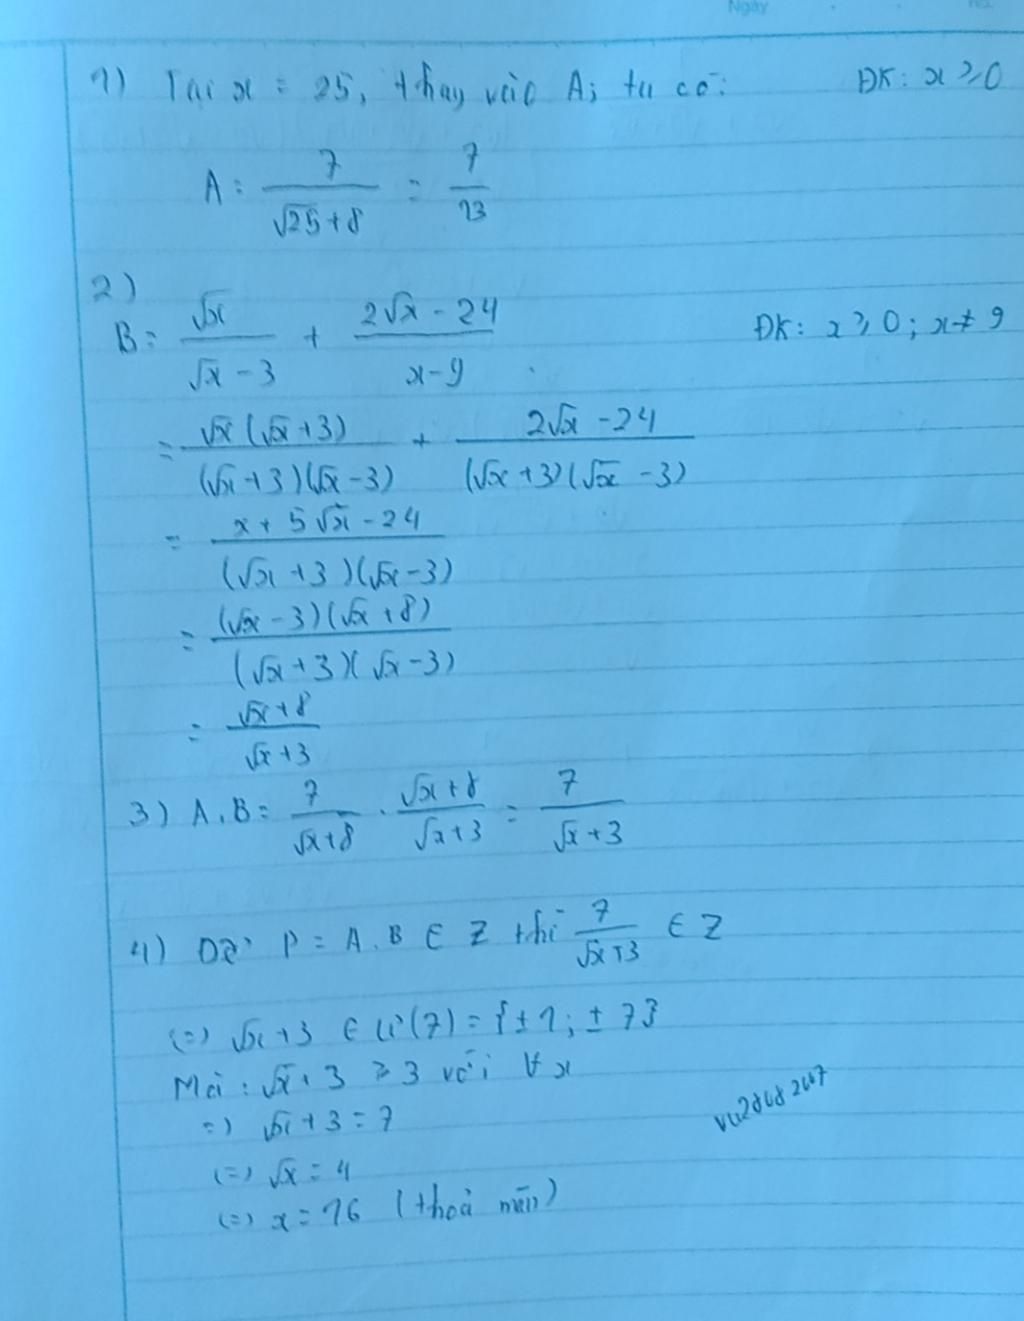 Ngày
1) Tại x = 25, thay vào A; ta có: ĐK: x ≥ 0
A = 7/(√25 + 8) = 7/13
2)
B = √x/(√x - 3) + (2√x - 24)/(x - 9) ĐK: x ≥ 0; x ≠ 9
= √x(√x + 3)/((√x + 3)(√x - 3)) + (2√x - 24)/((√x + 3)(√x - 3))
= (x + 5√x - 24)/((√x + 3)(√x - 3))
= (√x - 3)(√x + 8)/((√x + 3)(√x - 3))
= (√x + 8)/(√x + 3)
3) A.B = 7/(√x + 8) . (√x + 8)/(√x + 3) = 7/(√x + 3)
4) Để P = A.B ∈ Z thì 7/(√x + 3) ∈ Z
(=) √x + 3 ∈ Ư(7) = {±1; ±7}
Mà: √x + 3 ≥ 3 với ∀x
=) √x + 3 = 7
(=) √x = 4
(=) x = 16 (thoả mãn)